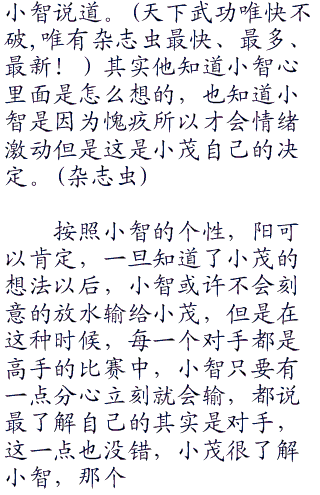 小智说道。(天下武功唯快不
破,唯有杂志虫最快、最多、
最新！)其实他知道小智心
里面是怎么想的，也知道小
智是因为愧疚所以才会情绪
激动但是这是小茂自己的决
定。(杂志虫)
按照小智的个性，阳可
以肯定，一旦知道了小茂的
想法以后，小智或许不会刻
意的放水输给小茂，但是在
这种时候，每一个对手都是
高手的比赛中，小智只要有
一点分心立刻就会输，都说
最了解自己的其实是对手，
这一点也没错，小茂很了解
小智，那个